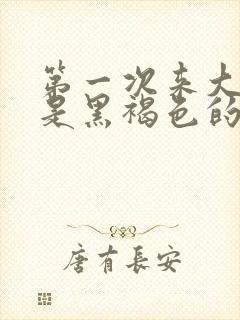 第一次来大
是黑褐色的
唐有长安